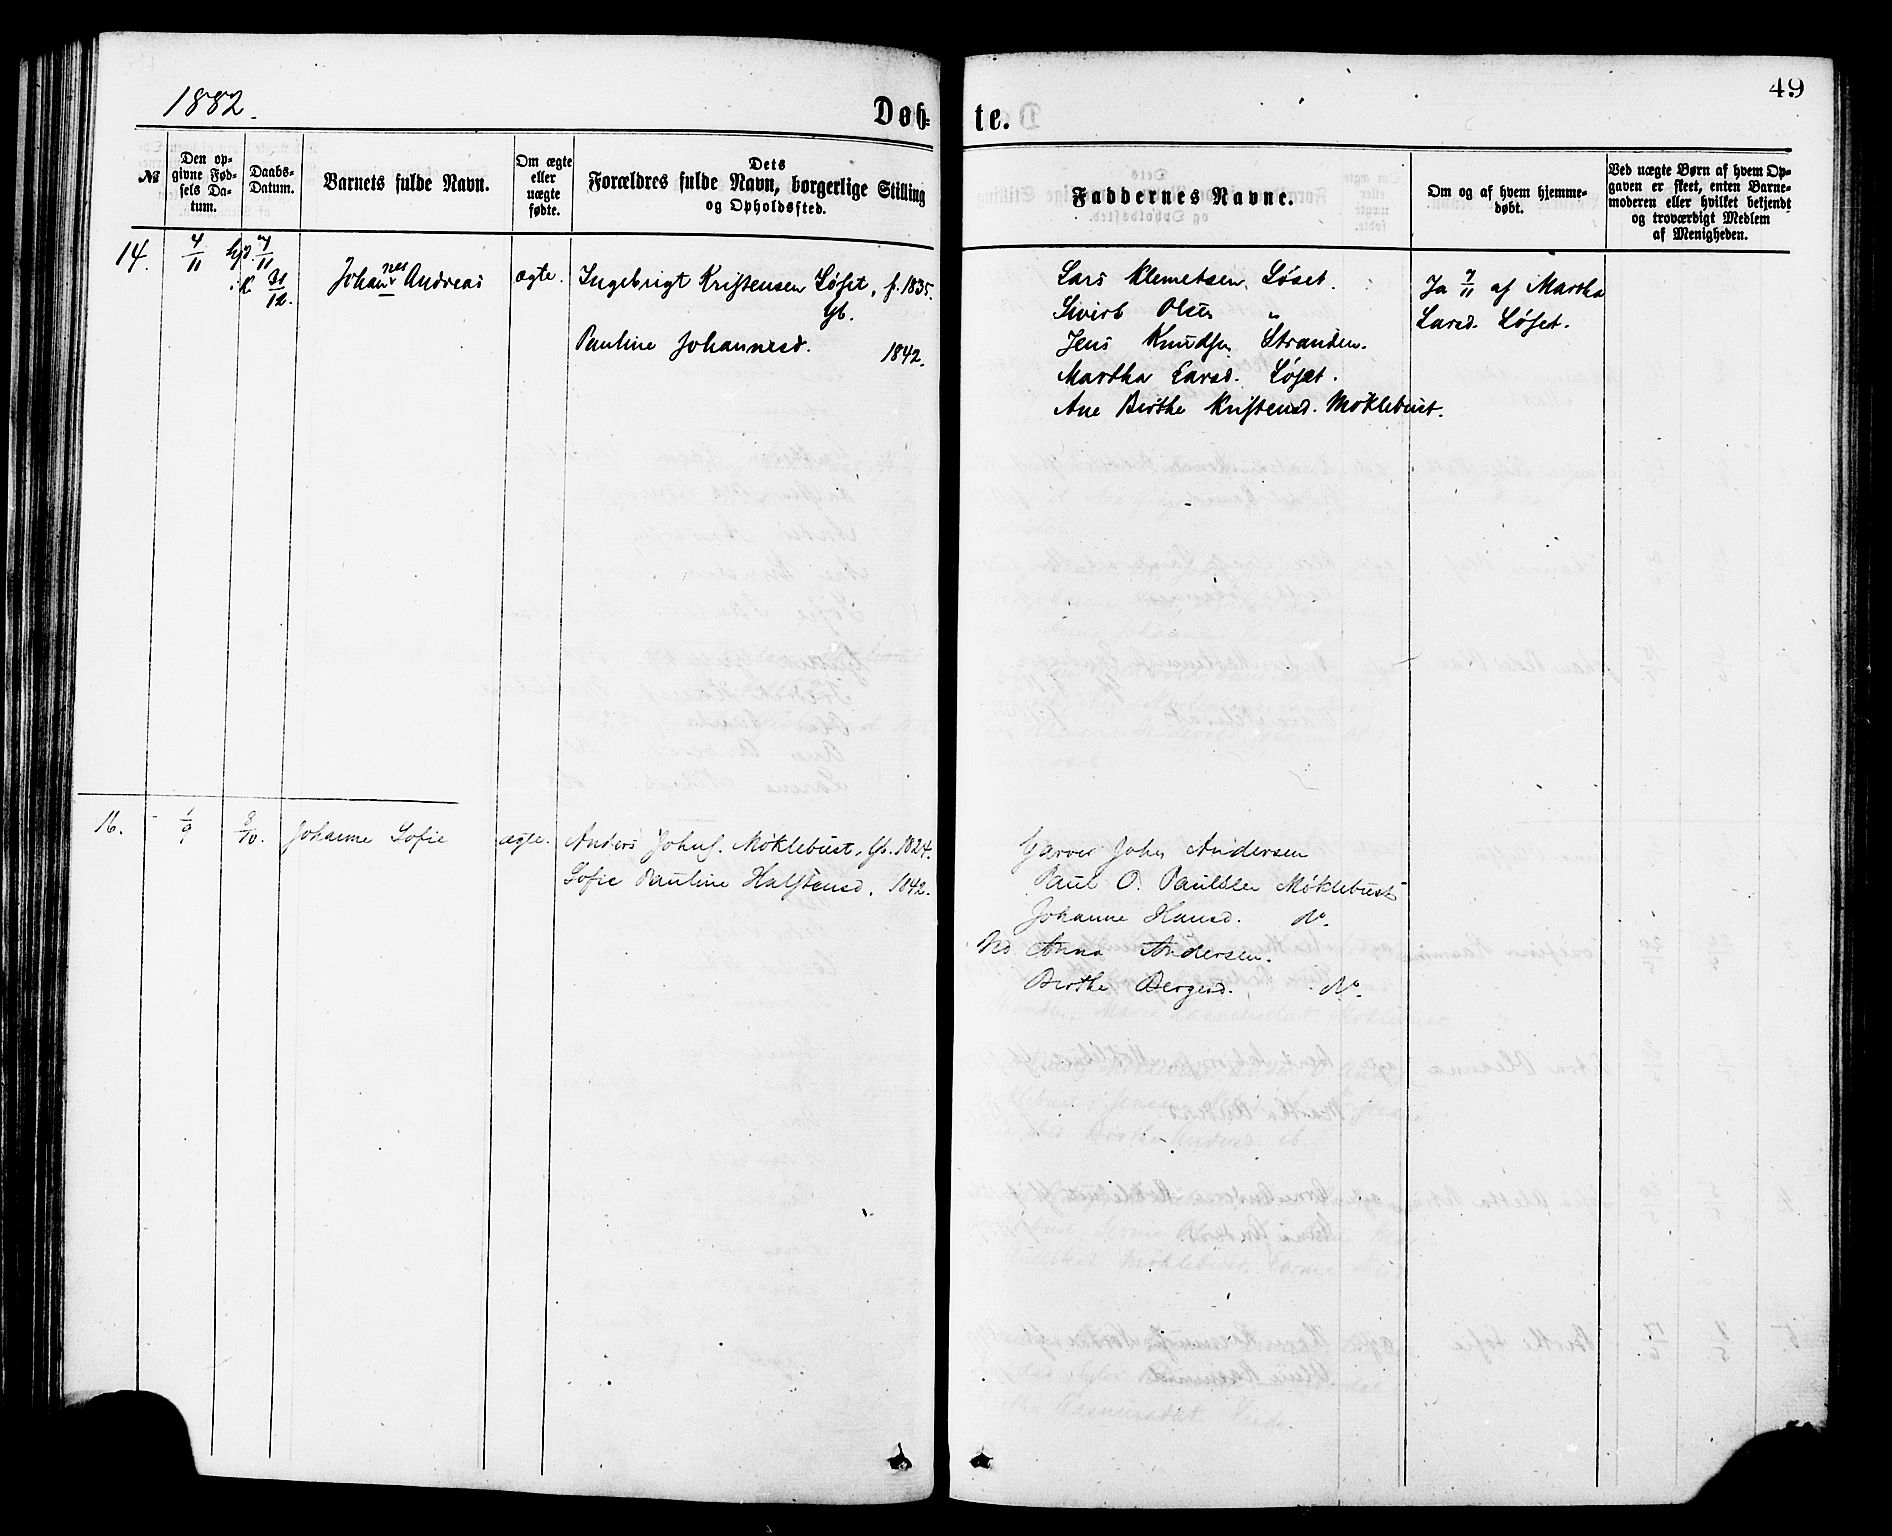 1882.
Døbte.
49
№
Den opgivne Fødsels Datum.
Daabs-Datum.
Barnets fulde Navn.
Om ægte eller uægte fødte.
Dets Forældres fulde Navn, borgerlige Stilling og Opholdssted.
Faddernes Navne.
Om og af hvem hjemmedøbt.
Ved uægte Børn af hvem Opgaven er skeet, enten Barnemoderen eller hvilket bekjendt og troværdigt Medlem af Menigheden.
14.
hjd. 7/11
i K. 31/12.
Johannes Andreas
ægte.
Ingebrigt Kristensen Løset, f. 1835.
Gb.
Pauline Johannesd. 1842.
Lars Klemetsen Løset.
Sivert Olsen "
Jens Knudsen Stranden.
Martha Larsd. Løset.
Ane Berthe Kristensd. Møklebust.
Ja 7/11 af Martha
Larsd. Løset.
16.
1/9
8/10.
Johanne Sofie
ægte.
Anders Johns. Møklebust, Gb. 1824.
Sofie Pauline Halstensd. 1842.
Garver John Andersen
Paul O. Møklebust
Johanne Hansd. do.
Anna Andersen.
Berthe Bergesd. do.